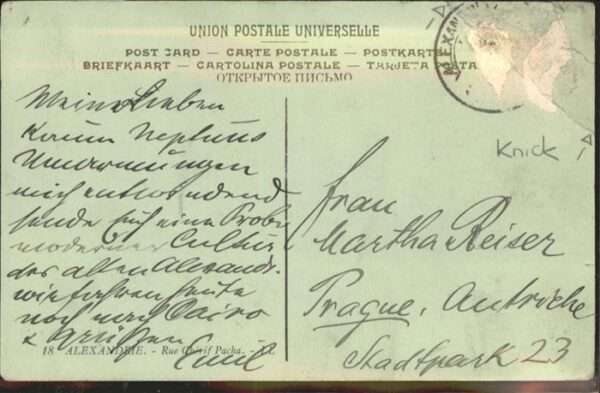 UNION POSTALE UNIVERSELLE
POST CARD — CARTE POSTALE — POSTKARTE
BRIEFKAART — CARTOLINA POSTALE — TARJETA POSTA
ОТКРЫТОЕ ПИСЬМО
ALEXAN
Knick
Meine Lieben
Kaum Neptuns
Umarmungen
mich entwindend
sende Euch eine Probe
moderner Cultur
des alten Alexandr.
wir fahren heute
noch nach Cairo
& grüßen
Emil
Frau
Martha Reiser
Prague, Autriche
Stadtpark 23
18 ALEXANDRIE. - Rue Chérif Pacha. -